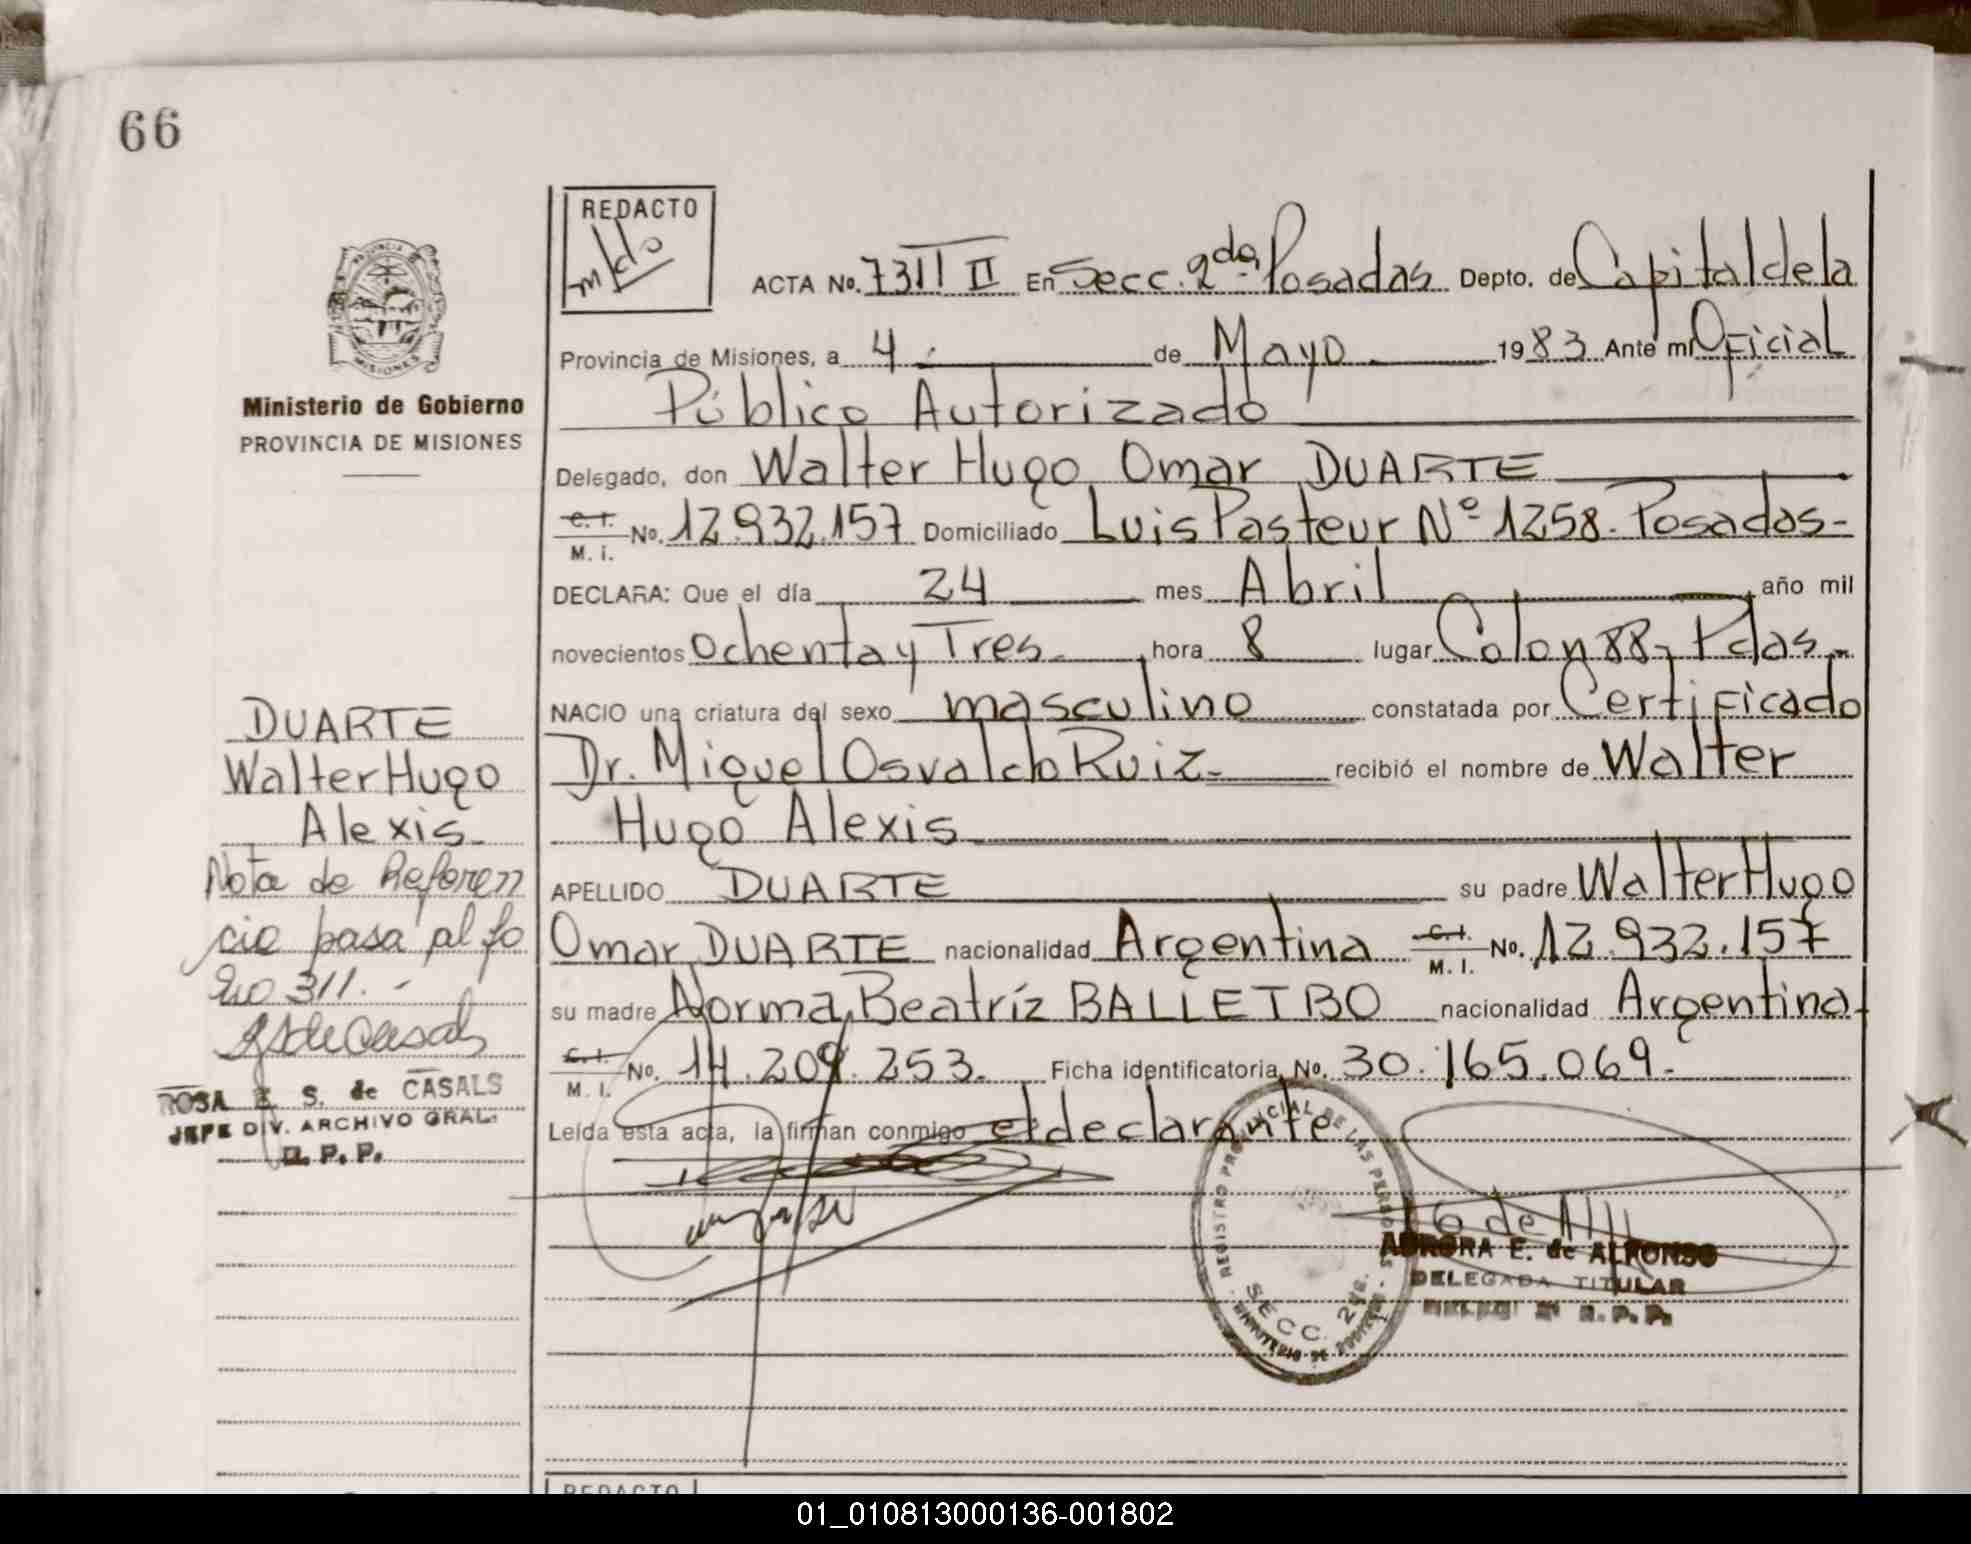 66
REDACTO
mldo
ACTA No. 731 T II En Secc. 2da Posadas Depto. de Capital de la
Provincia de Misiones, a 4 de Mayo 1983 Ante mi Oficial
Público Autorizado
Delegado, don Walter Hugo Omar DUARTE
C. I.
M. I. No. 12.932.157 Domiciliado Luis Pasteur Nº 1258. Posadas-
DECLARA: Que el día 24 mes Abril año mil
novecientos Ochenta y Tres hora 8 lugar Colon 88, Pdas
NACIO una criatura del sexo masculino constatada por Certificado
Dr. Miguel Osvaldo Ruiz recibió el nombre de Walter
Hugo Alexis
APELLIDO DUARTE su padre Walter Hugo
Omar DUARTE nacionalidad Argentina C. I. M. I. No. 12.932.157
su madre Norma Beatríz BALLETBO nacionalidad Argentina
C. I. M. I. No. 14.209.253. Ficha identificatoria No. 30.165.069.-
Leída esta acta, la firman conmigo el declarante
REGISTRO PROVINCIAL DE LAS PERSONAS
SECC. 2da.
AURORA E. de ALFONSO
DELEGADA TITULAR
R. P. P.
PROVINCIA DE
MISIONES
Ministerio de Gobierno
PROVINCIA DE MISIONES
DUARTE
Walter Hugo
Alexis
Nota de Referen
cia pasa al fo
lio 311.-
ROSA E. S. de CASALS
JEFE DIV. ARCHIVO GRAL.
R. P. P.
REDACTO
01_010813000136-001802